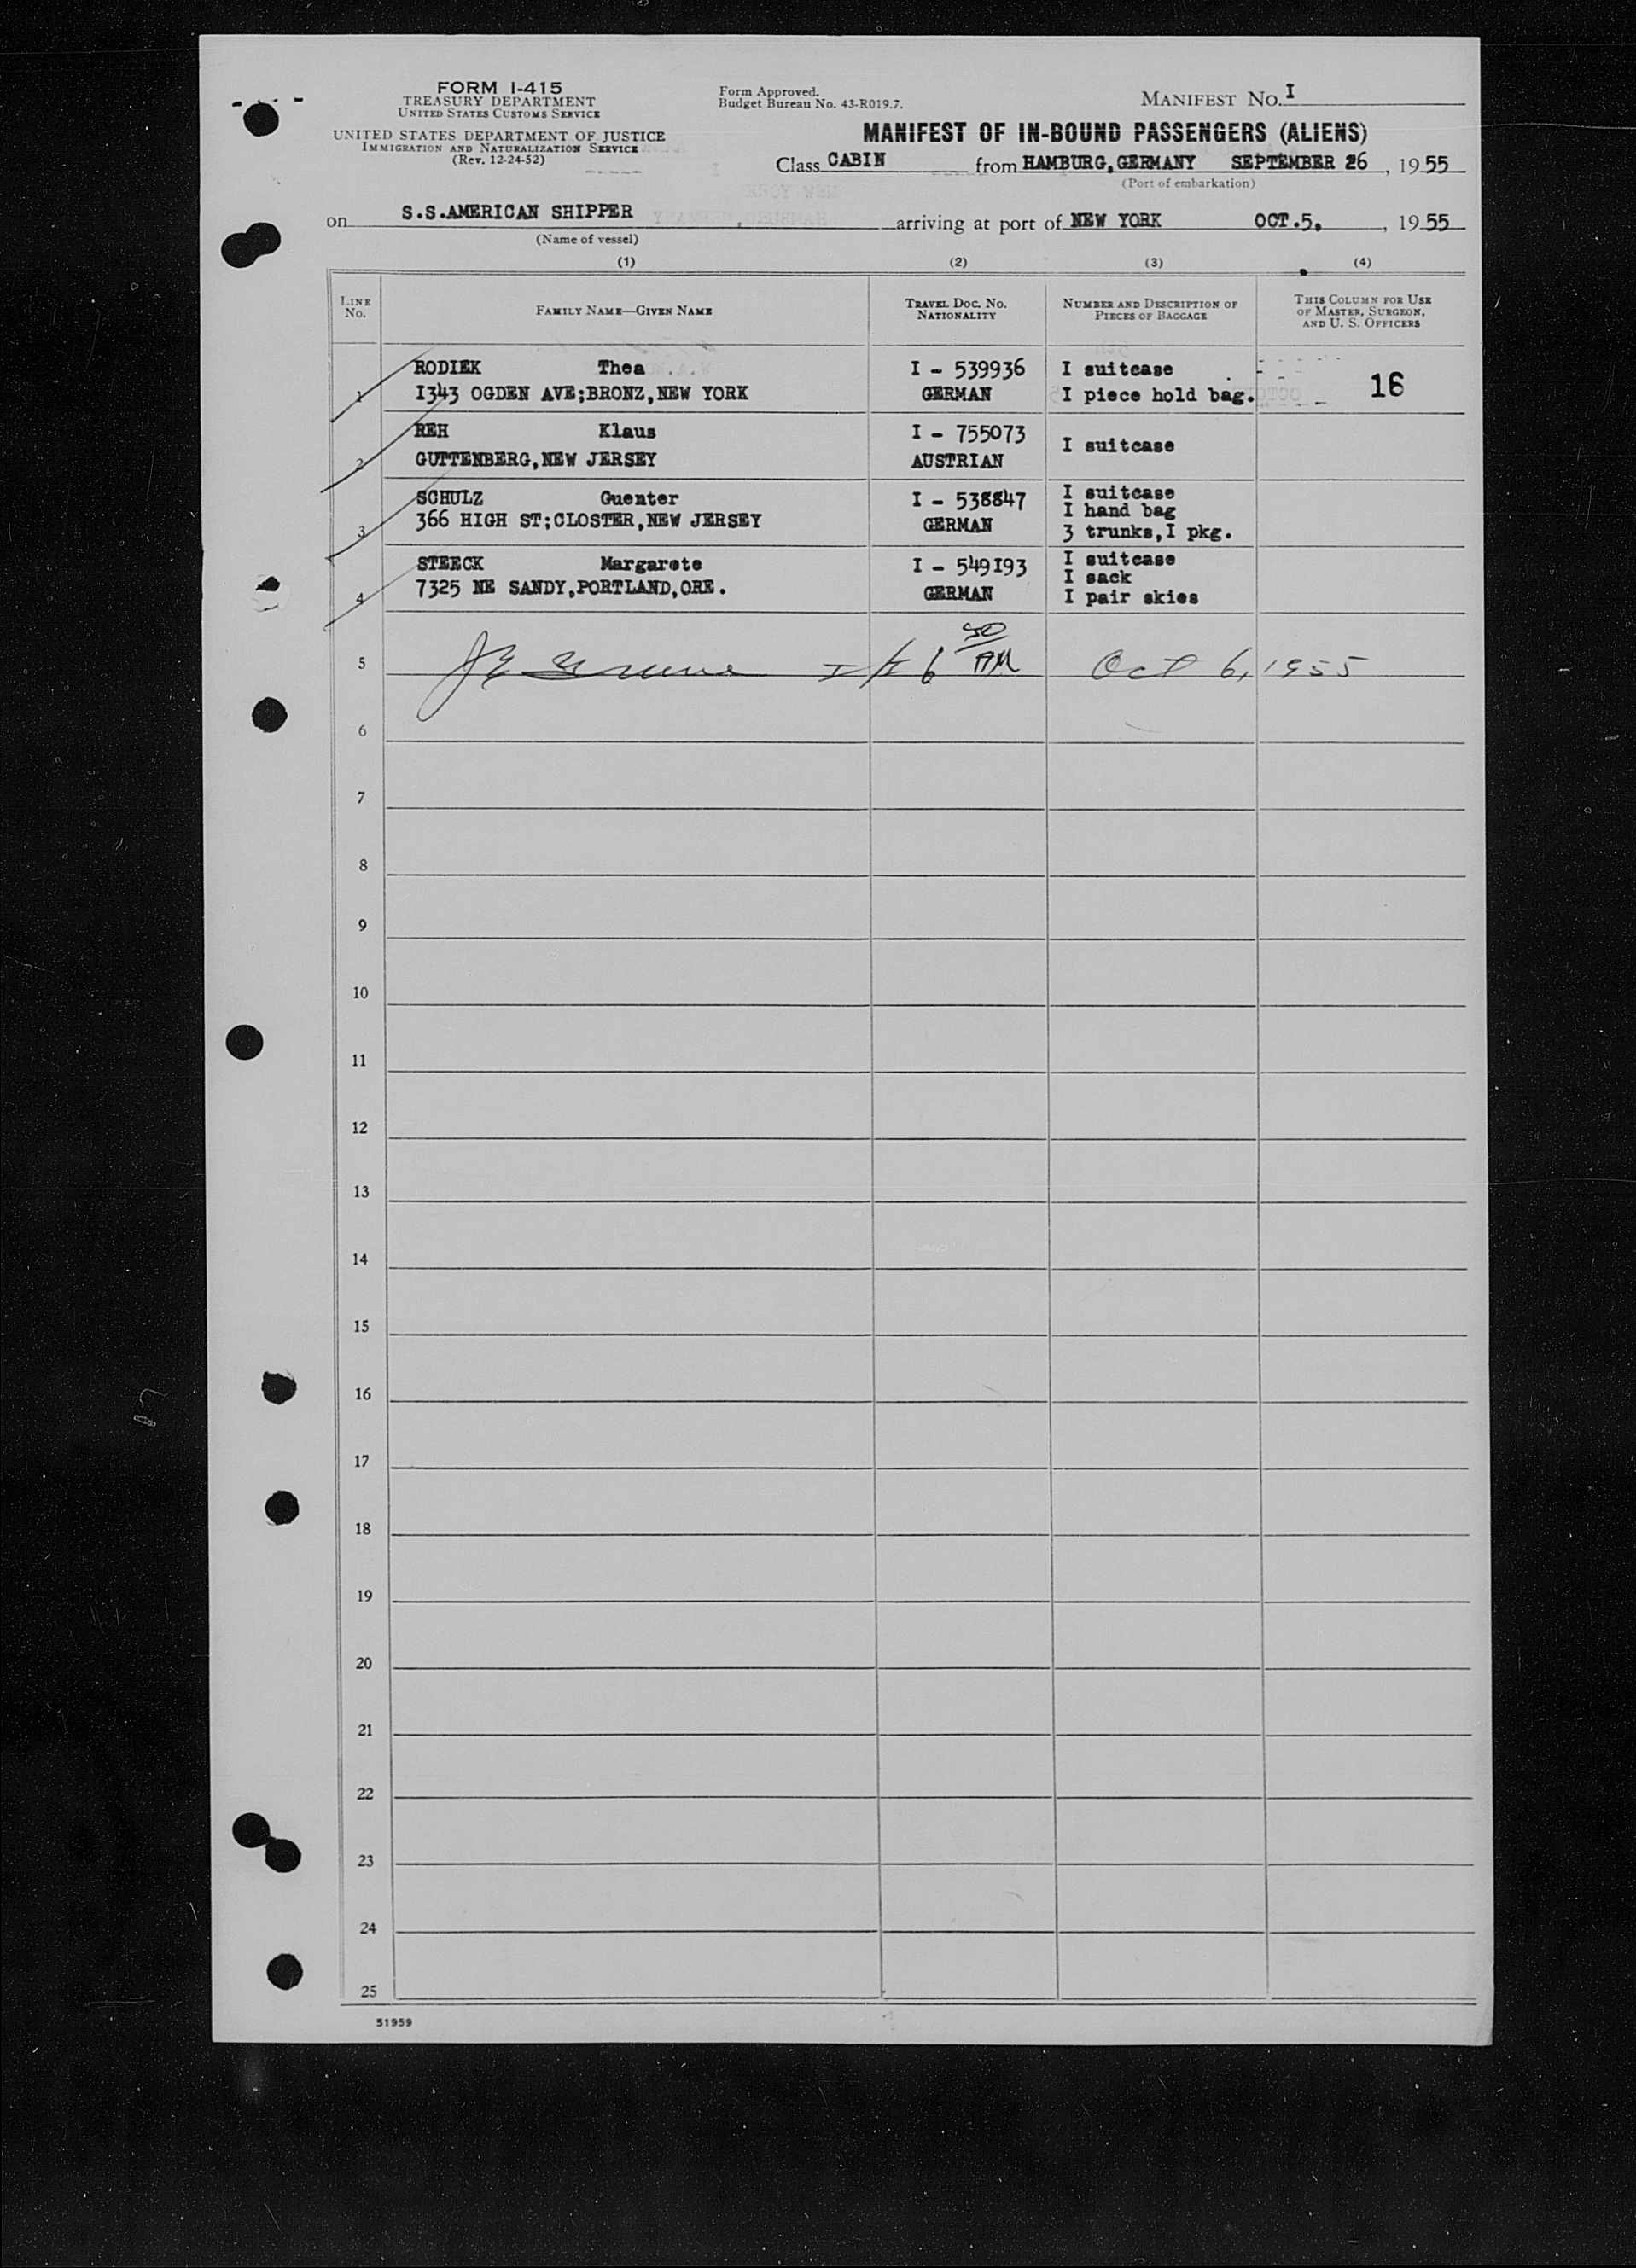 FORM I-415
TREASURY DEPARTMENT
UNITED STATES CUSTOMS SERVICE
UNITED STATES DEPARTMENT OF JUSTICE
IMMIGRATION AND NATURALIZATION SERVICE
(Rev. 12-24-52)
Form Approved.
Budget Bureau No. 43-R019.7.
MANIFEST NO. I
MANIFEST OF IN-BOUND PASSENGERS (ALIENS)
Class CABIN from HAMBURG,GERMANY SEPTEMBER 26, 1955
(Port of embarkation)
on S.S.AMERICAN SHIPPER arriving at port of NEW YORK OCT.5, , 1955
(Name of vessel)
(1) (2) (3) (4)
LINE NO. FAMILY NAME—GIVEN NAME TRAVEL DOC. NO. NATIONALITY NUMBER AND DESCRIPTION OF PIECES OF BAGGAGE THIS COLUMN FOR USE OF MASTER, SURGEON, AND U. S. OFFICERS
RODIEK Thea I - 539936 I suitcase
1 I343 OGDEN AVE;BRONZ,NEW YORK GERMAN I piece hold bag. 16
REH Klaus I - 755073 I suitcase
2 GUTTENBERG,NEW JERSEY AUSTRIAN
SCHULZ Guenter I - 538847 I suitcase
I hand bag
3 366 HIGH ST;CLOSTER,NEW JERSEY GERMAN 3 trunks,I pkg.
STEECK Margarete I - 549I93 I suitcase
I sack
4 7325 NE SANDY,PORTLAND,ORE. GERMAN I pair skies
5 6 AM Oct 6, 1955
6
7
8
9
10
11
12
13
14
15
16
17
18
19
20
21
22
23
24
25
51959